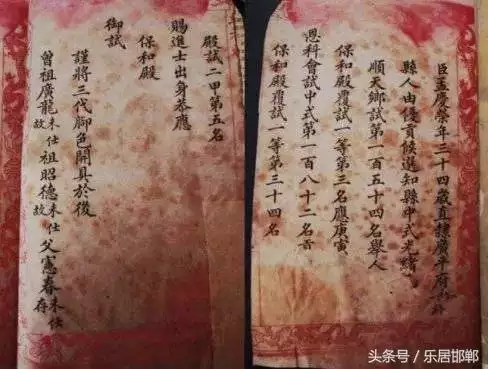 臣孟慶榮年三十四歲直隸廣平府
縣人由優貢候選知縣中式光緒
順天鄉試第一百五十四名舉人
保和殿覆試一等第三名應庚寅
恩科會試中式第一百八十二名
保和殿覆試一等第三十四名
殿試二甲第五名
賜進士出身恭應
御試
保和殿
謹將三代脚色開具於後
曾祖廣龍未仕故 祖昭德未仕故 父憲春未仕存
头条号 / 乐居邯郸